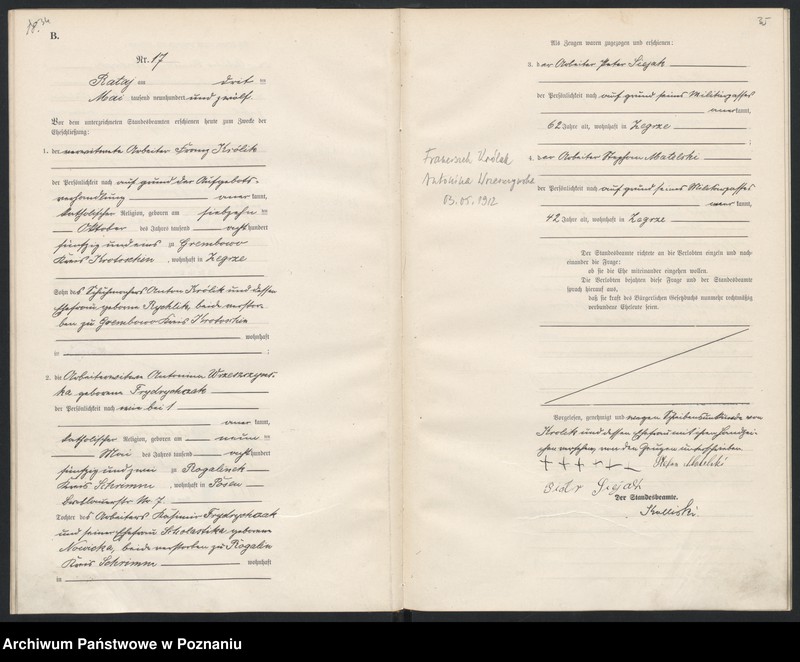 B.
Nr. 17
Rataj am drit ten
Mai tausend neunhundert und zwölf
Vor dem unterzeichneten Standesbeamten erschienen heute zum Zwecke der
Eheschließung:
1. der verwitwete Arbeiter Franz Królik
der Persönlichkeit nach auf grund der Aufgebots-
verhandlung anerkannt,
katholischer Religion, geboren am siebzehn ten
Oktober des Jahres tausend achthundert
fünfzig und eins zu Grembowo
Kreis Krotoschin, wohnhaft in Zegrze
Sohn des Schuhmachers Anton Królik und dessen
Ehefrau geborene Rychlik, beide verstor-
ben zu Grembowo Kreis Krotoschin
wohnhaft
in ;
2. die Arbeiterwitwe Antonina Wrzeszczyns-
ka geborene Frydryszak
der Persönlichkeit nach wie bei 1
anerkannt,
katholischer Religion, geboren am neun ten
Mai des Jahres tausend achthundert
fünfzig und zwei zu Rogalinek
Kreis Schrimm, wohnhaft in Posen
Nr. 7
Tochter des Arbeiters Kasimir Frydryszak
und seiner Ehefrau Skolastika geborene
Nowicka, beide verstorben zu Rogalin
Kreis Schrimm wohnhaft
in
35
Als Zeugen waren zugezogen und erschienen:
3. der Arbeiter Peter Siejak
der Persönlichkeit nach auf grund seines Militärpasses
anerkannt,
62 Jahre alt, wohnhaft in Zegrze
;
4. der Arbeiter Stephan Matelski
der Persönlichkeit nach auf grund seines Militärpasses
anerkannt,
42 Jahre alt, wohnhaft in Zegrze
Franciszek Królak
Antonina
03.05.1912
Der Standesbeamte richtete an die Verlobten einzeln und nach-
einander die Frage:
ob sie die Ehe miteinander eingehen wollen.
Die Verlobten bejahten diese Frage und der Standesbeamte
sprach hierauf aus,
daß sie kraft des Bürgerlichen Gesetzbuchs nunmehr rechtmäßig
verbundene Eheleute seien.
Vorgelesen, genehmigt und wegen Schreibensunkunde von
Krolik und dessen Ehefrau mit ihren Handzei-
chen versehen, von den Zeugen unterschrieben.
+ + + Stefan Matelski
Piotr Siejak
Der Standesbeamte.
Archiwum Państwowe w Poznaniu